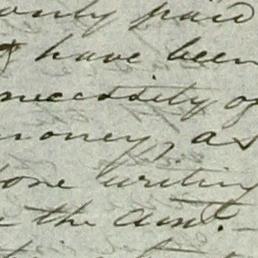 only paid
I have been
necessity of
money, as
done writing
the amt.